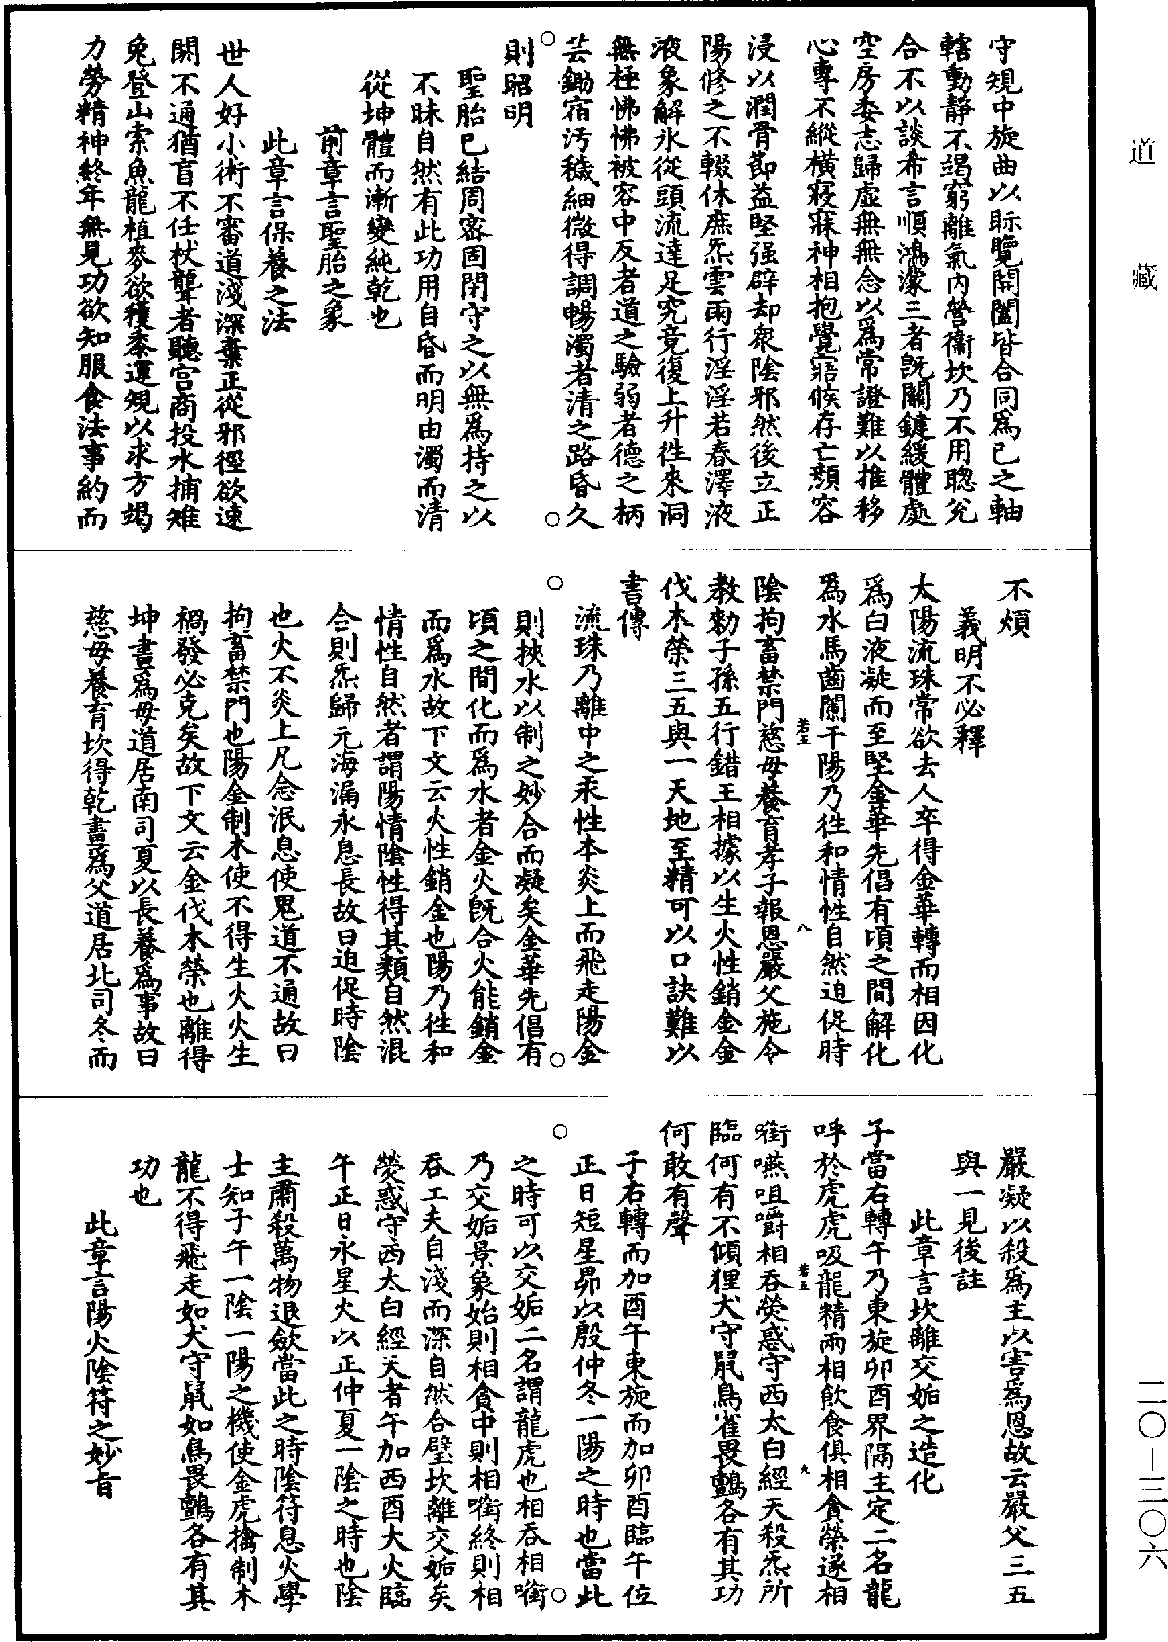 守規中旋曲以眎覽開闔皆合同爲已之軸
轄動靜不竭窮離氣內營衞坎乃不用聰兊
合不以談希言順鴻濛三者旣關鍵緩體處
空房委志歸虛無無念以爲常證難以推移
心專不縱橫寢寐神相抱覺寤候存亡顏容
浸以潤骨節益堅强辟却衆陰邪然後立正
陽修之不輟休庶炁雲雨行淫淫若春澤液
液象解氷從頭流達足究竟復上升徃來洞
無極怫怫被容中反者道之驗弱者德之柄
芸鋤宿汚穢細微得調暢濁者清之路昏久
則昭明
聖胎已結周密固閉守之以無爲持之以
不昧自然有此功用自昏而明由濁而清
從坤體而漸變純乾也
前章言聖胎之象
此章言保養之法
世人好小術不審道淺深棄正從邪徑欲速
閼不通猶盲不任杖聾者聽宮商投水捕雉
兔登山索魚龍植麥欲穫黍運規以求方竭
力勞精神終年無見功欲知服食法事約而
不煩
義明不必釋
太陽流珠常欲去人卒得金華轉而相因化
爲白液凝而至堅金華先倡有頃之間解化
爲水馬齒闌干陽乃徃和情性自然迫促時
陰拘畜禁門慈母養育孝子報恩嚴父施令
教勑子孫五行錯王相據以生火性銷金金
伐木榮三五與一天地至精可以口訣難以
書傳
流珠乃離中之汞性本炎上而飛走陽金
則挾水以制之妙合而凝矣金華先倡有
頃之間化而爲水者金火旣合火能銷金
而爲水故下文云火性銷金也陽乃徃和
情性自然者謂陽情陰性得其類自然混
合則炁歸元海漏永息長故曰迫促時陰
也火不炎上凡念泯息使鬼道不通故曰
拘畜禁門也陽金制木使不得生火火生
禍發必克矣故下文云金伐木榮也離得
坤畫爲母道居南司夏以長養爲事故曰
慈母養育坎得乾畫爲父道居北司冬而
嚴凝以殺爲主以害爲恩故云嚴父三五
與一見後註
此章言坎離交姤之造化
子當右轉午乃東旋卯酉界隔主定二名龍
呼於虎虎吸龍精兩相飮食俱相貪榮遂相
銜嚥咀嚼相吞熒惑守西太白經天殺炁所
臨何有不傾狸犬守鼠鳥雀畏鸇各有其功
何敢有聲
子右轉而加酉午東旋而加卯酉臨午位
正日短星昴以殷仲冬一陽之時也當此
之時可以交姤二名謂龍虎也相吞相銜
乃交姤景象始則相貪中則相銜終則相
吞工夫自淺而深自然合璧坎離交姤矣
熒惑守西太白經天者午加西酉大火臨
午正日永星火以正仲夏一陰之時也陰
主肅殺萬物退斂當此之時陰符息火學
士知子午一陰一陽之機使金虎擒制木
龍不得飛走如犬守鼠如鳥畏鸇各有其
功也
此章言陽火陰符之妙旨
若五
八
若五
九
道藏
二〇—三〇六